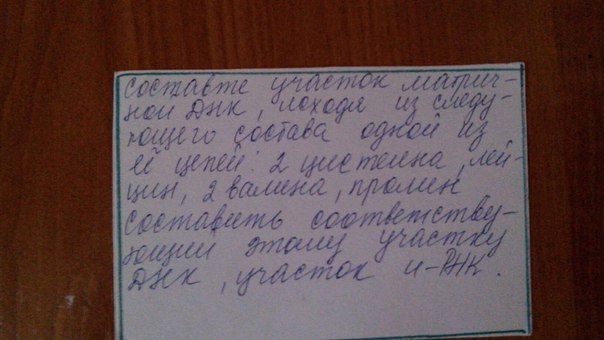 Составте участок матрич-
ной ДНК, исходя из следу-
ющего состава одной из
её цепей: 2 цистеина, лей-
цин, 2 валина, пролин
составить соответству-
ющий этому участку
ДНК, участок и-РНК.